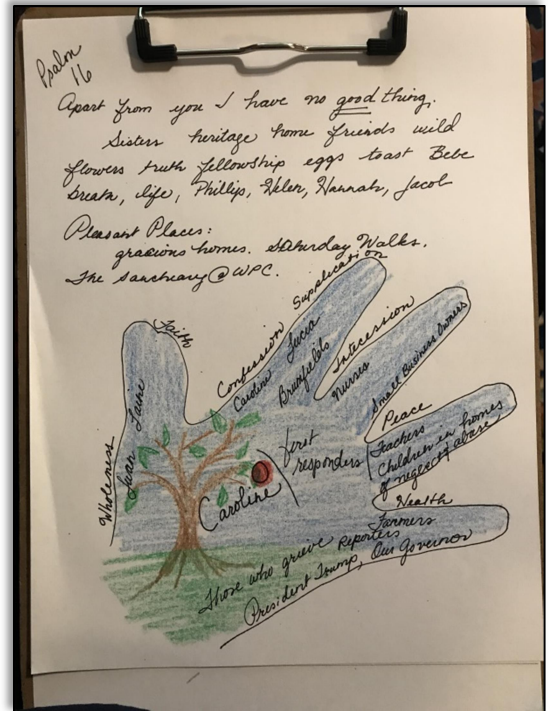 Psalm
16
Apart from you I have no good thing.
Sisters heritage home friends wild
flowers truth fellowship eggs toast Bebe
breath, life, Phillip, Helen, Hannah, Jacob
Pleasant Places:
gracious homes. Saturday Walks.
The Sanctuary @ WPC.
Faith
Wholeness
Laurie
Confession
Supplication
Caroline
Lucia
Brumfields
Intercession
Nurses
Small Business Owners
Peace
Teachers
Children in homes
of neglect/abuse
Health
Farmers
first
responders
Caroline
Those who grieve Reporters
President Trump, Our Governor